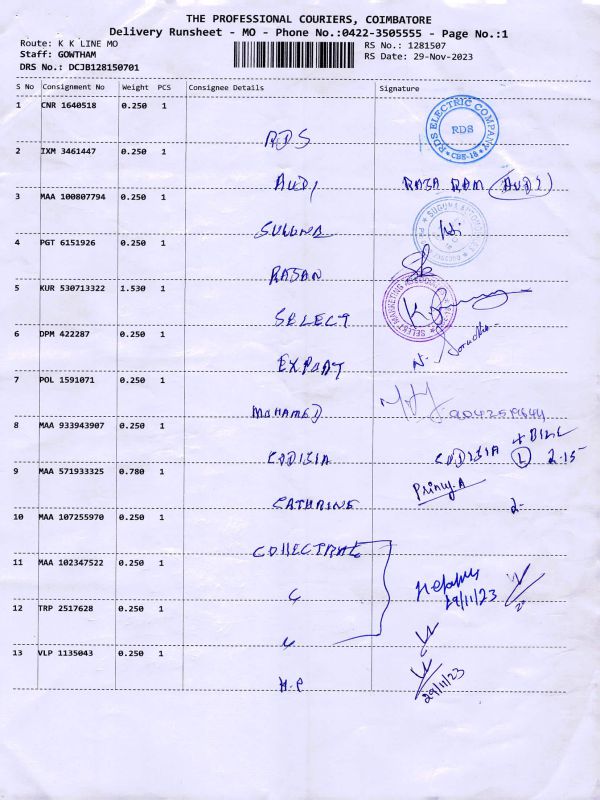 THE PROFESSIONAL COURIERS, COIMBATORE
Delivery Runsheet - MO - Phone No.:0422-3505555 - Page No.:1
Route: K K LINE MO
RS No.: 1281507
Staff: GOWTHAM
RS Date: 29-Nov-2023
DRS No.: DCJB128150701
S No Consignment No Weight PCS Consignee Details Signature
1 CNR 1640518 0.250 1
RDS
RDS ELECTRIC COMPANY
RDS
CBE-18
2 IXM 3461447 0.250 1
AUDI RAJA RAM (AUDI)
3 MAA 100807794 0.250 1
SUGUNA
4 PGT 6151926 0.250 1
RAJAN
5 KUR 530713322 1.530 1
SELECT
6 DPM 422287 0.250 1
EXPORT
7 POL 1591071 0.250 1
MOHAMED
8 MAA 933943907 0.250 1
+ BILL
CODISIA CODISIA L 2.15
9 MAA 571933325 0.780 1
CATHRINE Princy.A 2-
10 MAA 107255970 0.250 1
COLLECTRATE
11 MAA 102347522 0.250 1
29/11/23
12 TRP 2517628 0.250 1
13 VLP 1135043 0.250 1
H.P 29/11/23